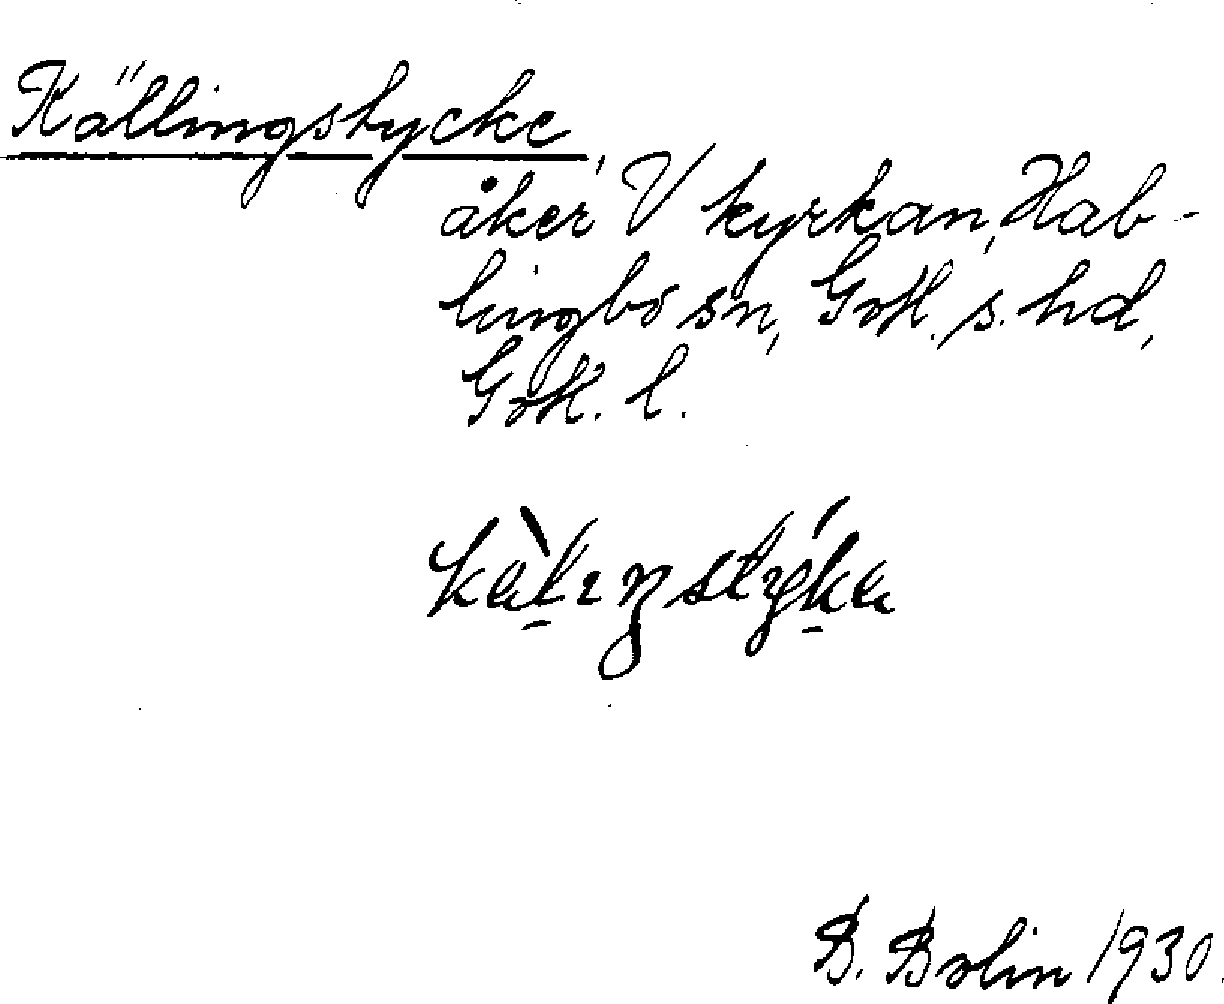 Källingstycke,
åker V kyrkan, Hab-
lingbo sn, Gotl. s. hd,
Gotl. l.
B. Bolin 1930.